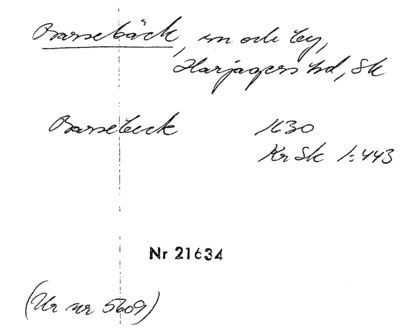 Barsebäck, sn och by,
Harjagers hd, Sk
Barsebeck 1630
KrSk 1:443
Nr 21634
(Ur nr 5609)